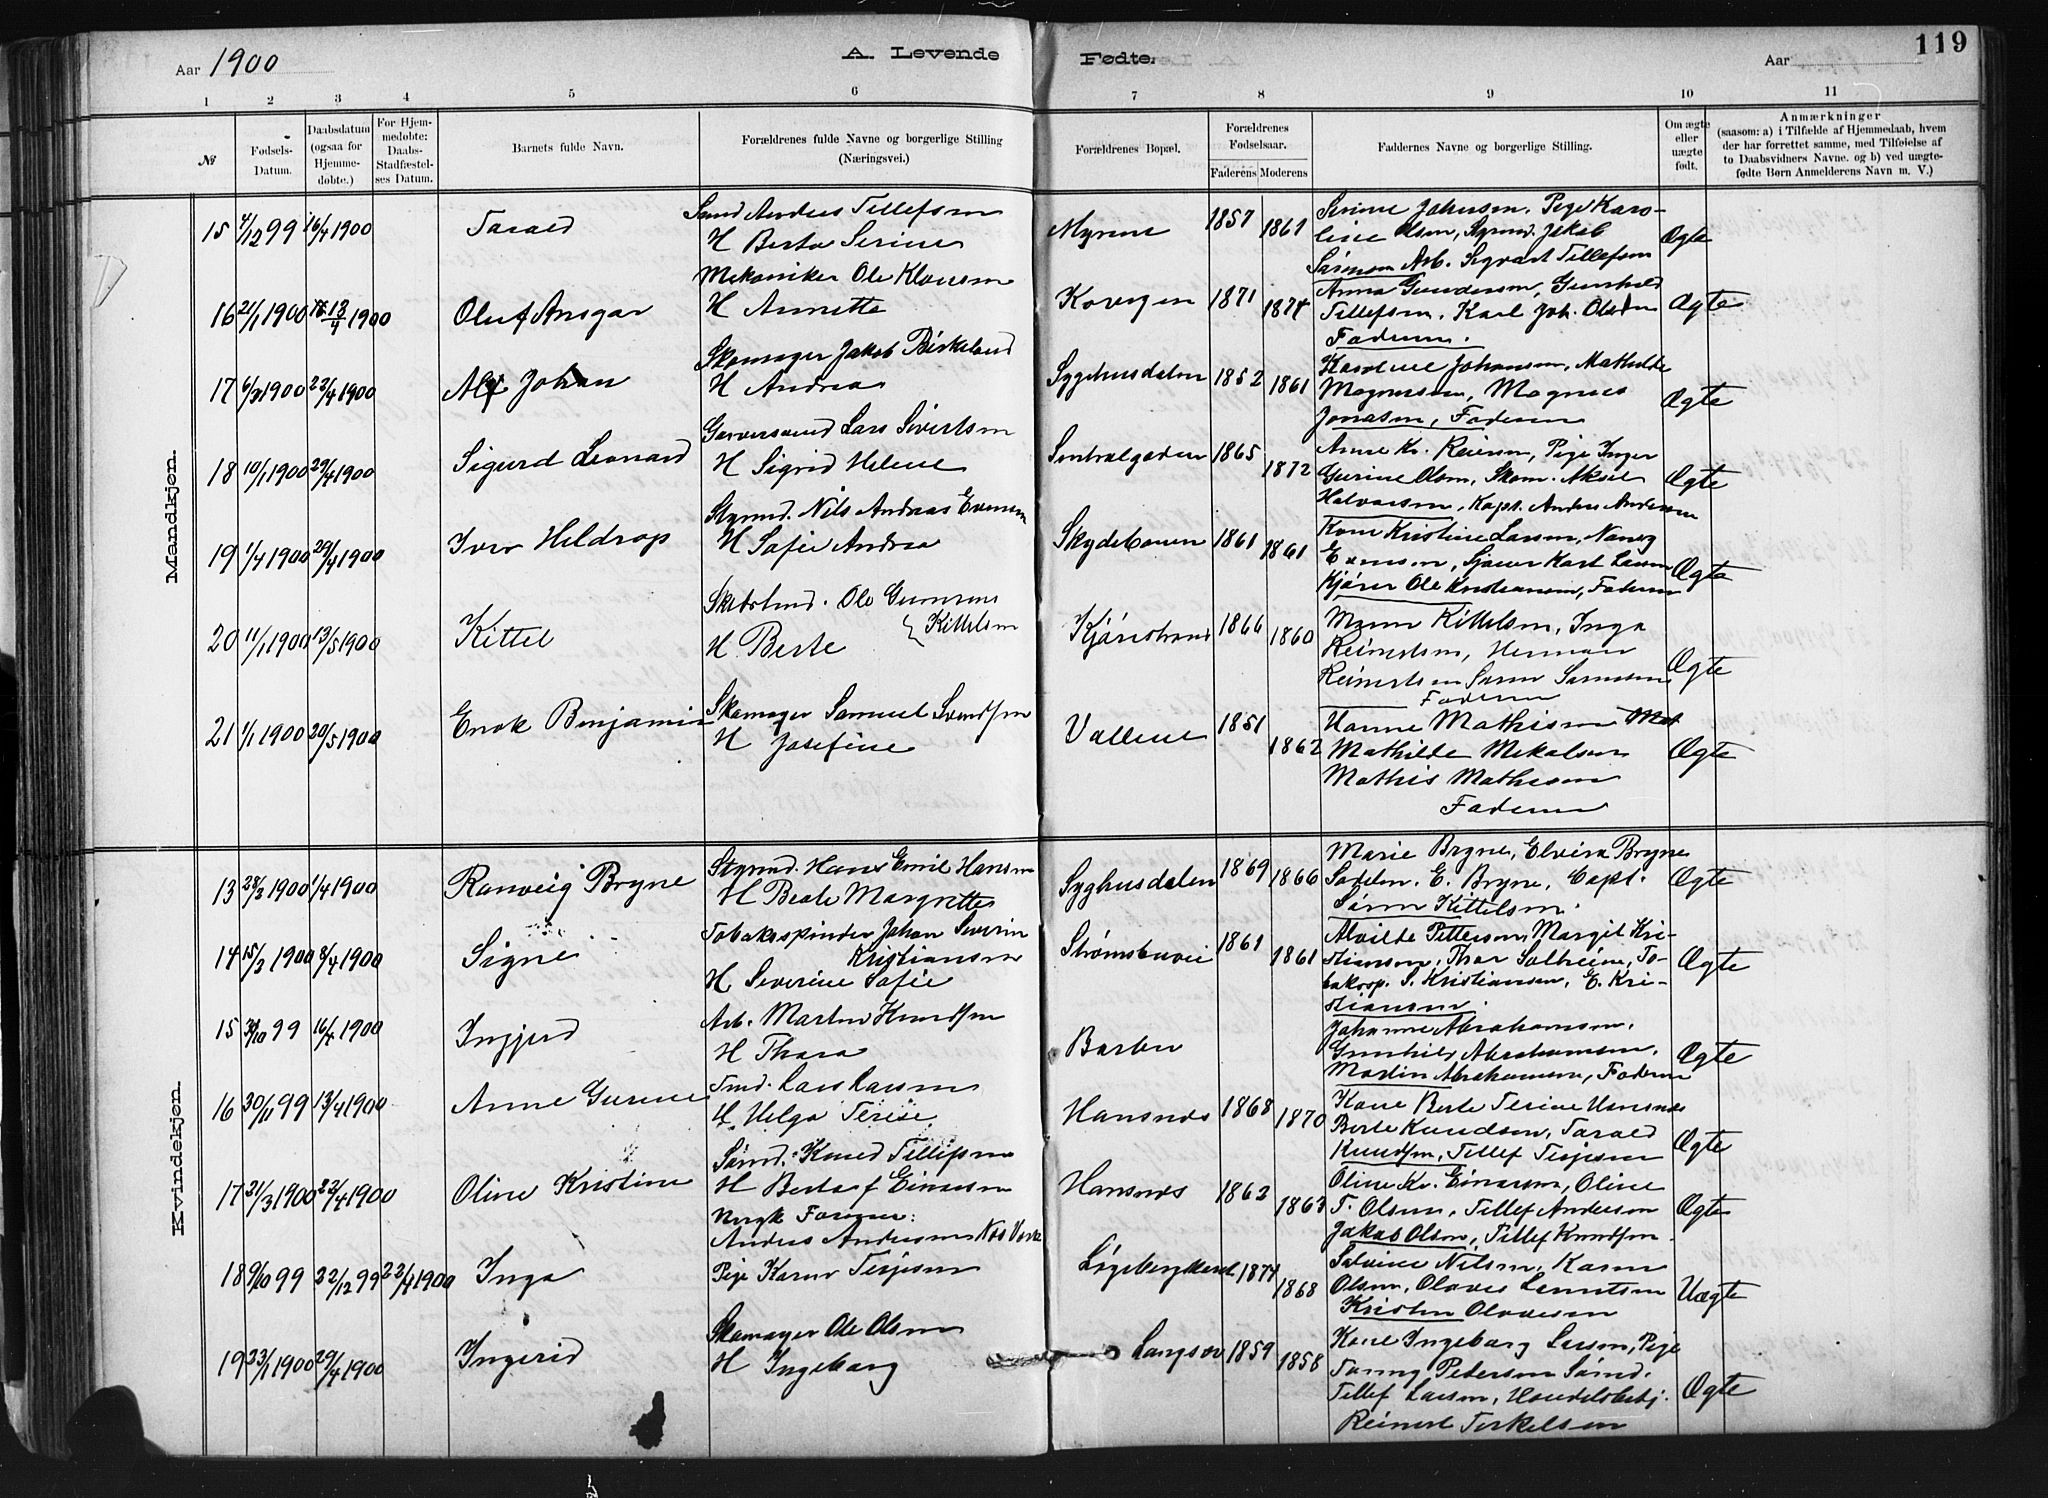 Aar 1900 A. Levende Fødte. Aar 119
1 2 3 4 5 6 7 8 9 10 11
№
Fødsels-
Datum.
Daabsdatum
(ogsaa for
Hjemme-
døbte.)
For Hjem-
medøbte:
Daabs-
Stadfæstel-
ses Datum.
Barnets fulde Navn.
Forældrenes fulde Navne og borgerlige Stilling
(Næringsvei.)
Forældrenes Bopæl.
Forældrenes
Fødselsaar.
Faderens Moderens
Faddernes Navne og borgerlige Stilling.
Om ægte
eller
uægte
født.
Anmærkninger
(saasom: a) i Tilfælde af Hjemmedaab, hvem
der har forrettet samme, med Tilføielse af
to Daabsvidners Navne. og b) ved uægte-
fødte Børn Anmelderens Navn m. V.)
Mandkjøn.
15 4/12 99 16/4 1900 Tarald
Anders Tillefsen
H Berta Serine
Myrene 1857 1861
Serine Johnsen, Pige Karo-
line Olsen, Styrmd. Jakob
Sørensen Arb. Sigvart Tillefsen
Ægte
16 21/1 1900 13/4 1900 Oluf Ansgar
Mekaniker Ole Klausen
H Annette
1871 1874
Anna Gundersen, Gunhild
Tillefsen. Karl Joh. Olsen
Faderen.
Ægte
17 6/3 1900 22/4 1900 Alf Johan
Skomager Jakob Birkeland
H Andrea
Sygehusdalen 1852 1861
Karoline Johansen, Mathilde
Magnussen, Magnus
Jonassen, Faderen
Ægte
18 10/1 1900 29/4 1900 Sigurd Leonard
Garversvend Lars Sivertsen
H Sigrid Helene
Sentralgaden 1865 1872
Anne Kr. Reiersen, Pige Inger
Gurine Olsen, Skom. Aksel
Halvorsen, Kapt. Anders Andersen
Ægte
19 1/4 1900 29/4 1900 Iver Heldrop
Styrmd. Nils Andreas Evensen
H Sofie Andrea
Skydebanen 1861 1861
Kone Kristine Larsen, Nancy
Evensen, Karl Larsen
Ole Kristiansen, Faderen
Ægte
20 11/1 1900 13/5 1900 Kittel
Ole Gunnsens
Kittelsen
H. Berte
Kjøristrand 1866 1860
Kittelsen, Inga
Reinertsen, Herman
Reinertsen Søren Sørensen
Faderen
Ægte
21 1/1 1900 20/5 1900 Enok Benjamin
Skomager Samuel Svendsen
H Josefine
Vallene 1851 1862
Hanne Mathisen Mat
Mathilde Mikalsen
Mathis Mathisen
Faderen
Ægte
Kvindekjøn.
13 28/2 1900 1/4 1900 Ranveig Bryne
Styrmd. Hans Emil Hansen
H Berte Margrette
Syghusdalen 1869 1866
Marie Bryne, Elvira Bryne
E. Bryne, Capt.
Søren Kittelsen.
Ægte
14 15/2 1900 8/4 1900 Signe
Tobakspinder Johan Severin
Kristiansen
H Severine Sofie
Strømsbuvei 1861 1861
Alvilde Pettersen, Margit Kri-
stiansen, Thor Solheim, To-
baksp. S. Kristiansen, E. Kri-
stiansen.
Ægte
15 30/10 99 16/4 1900 Ingjerd
Arb. Martin Knudsen
H Thora
Barbu
Johanne Abrahamsen.
Gunhild Abrahamsen.
Martin Abrahamsen, Faderen
Ægte
16 30/11 99 13/4 1900 Anne Gurine
Tmd. Lars Larsen
H. Helga Terese.
Hansnes 1868 1870
Kone Berte Terine Hansnes
Berte Knudsen, Tarald
Knudsen, Tillef Terjesen
Ægte
17 21/3 1900 22/4 1900 Oline Kristine
Sømd. Knud Tillefsen
H Berta f Einarsen
Hansnes 1862 1863
Oline Kr. Einarsen, Oline
T. Olsen, Tillef Andersen
Jakob Olsen, Tillef Knudsen.
Ægte
18 9/10 99 22/12 99 22/4 1900 Inga
Anders Andersen
Pige Karen Terjesen
1874 1868
Selvine Nilsen, Karen
Olsen, Olaves Lenertsen
Kristen Olavesen
Uægte
19 23/1 1900 29/4 1900 Ingerid
Skomager Ole Olsen
H Ingeborg
Langsæv 1859 1858
Kone Ingeborg Larsen, Pige
Fanny Pedersen Sømd.
Tillef Larsen, Handelsbetj.
Reinert Terkelsen
Ægte